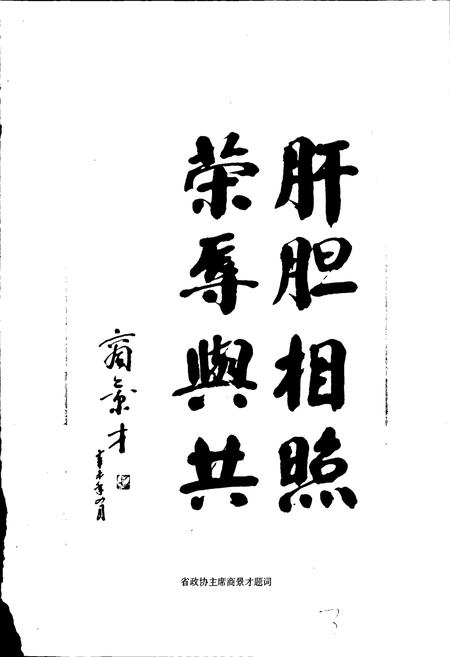 肝胆相照
荣辱與共
商景才
辛未年四月
省政协主席商景才题词